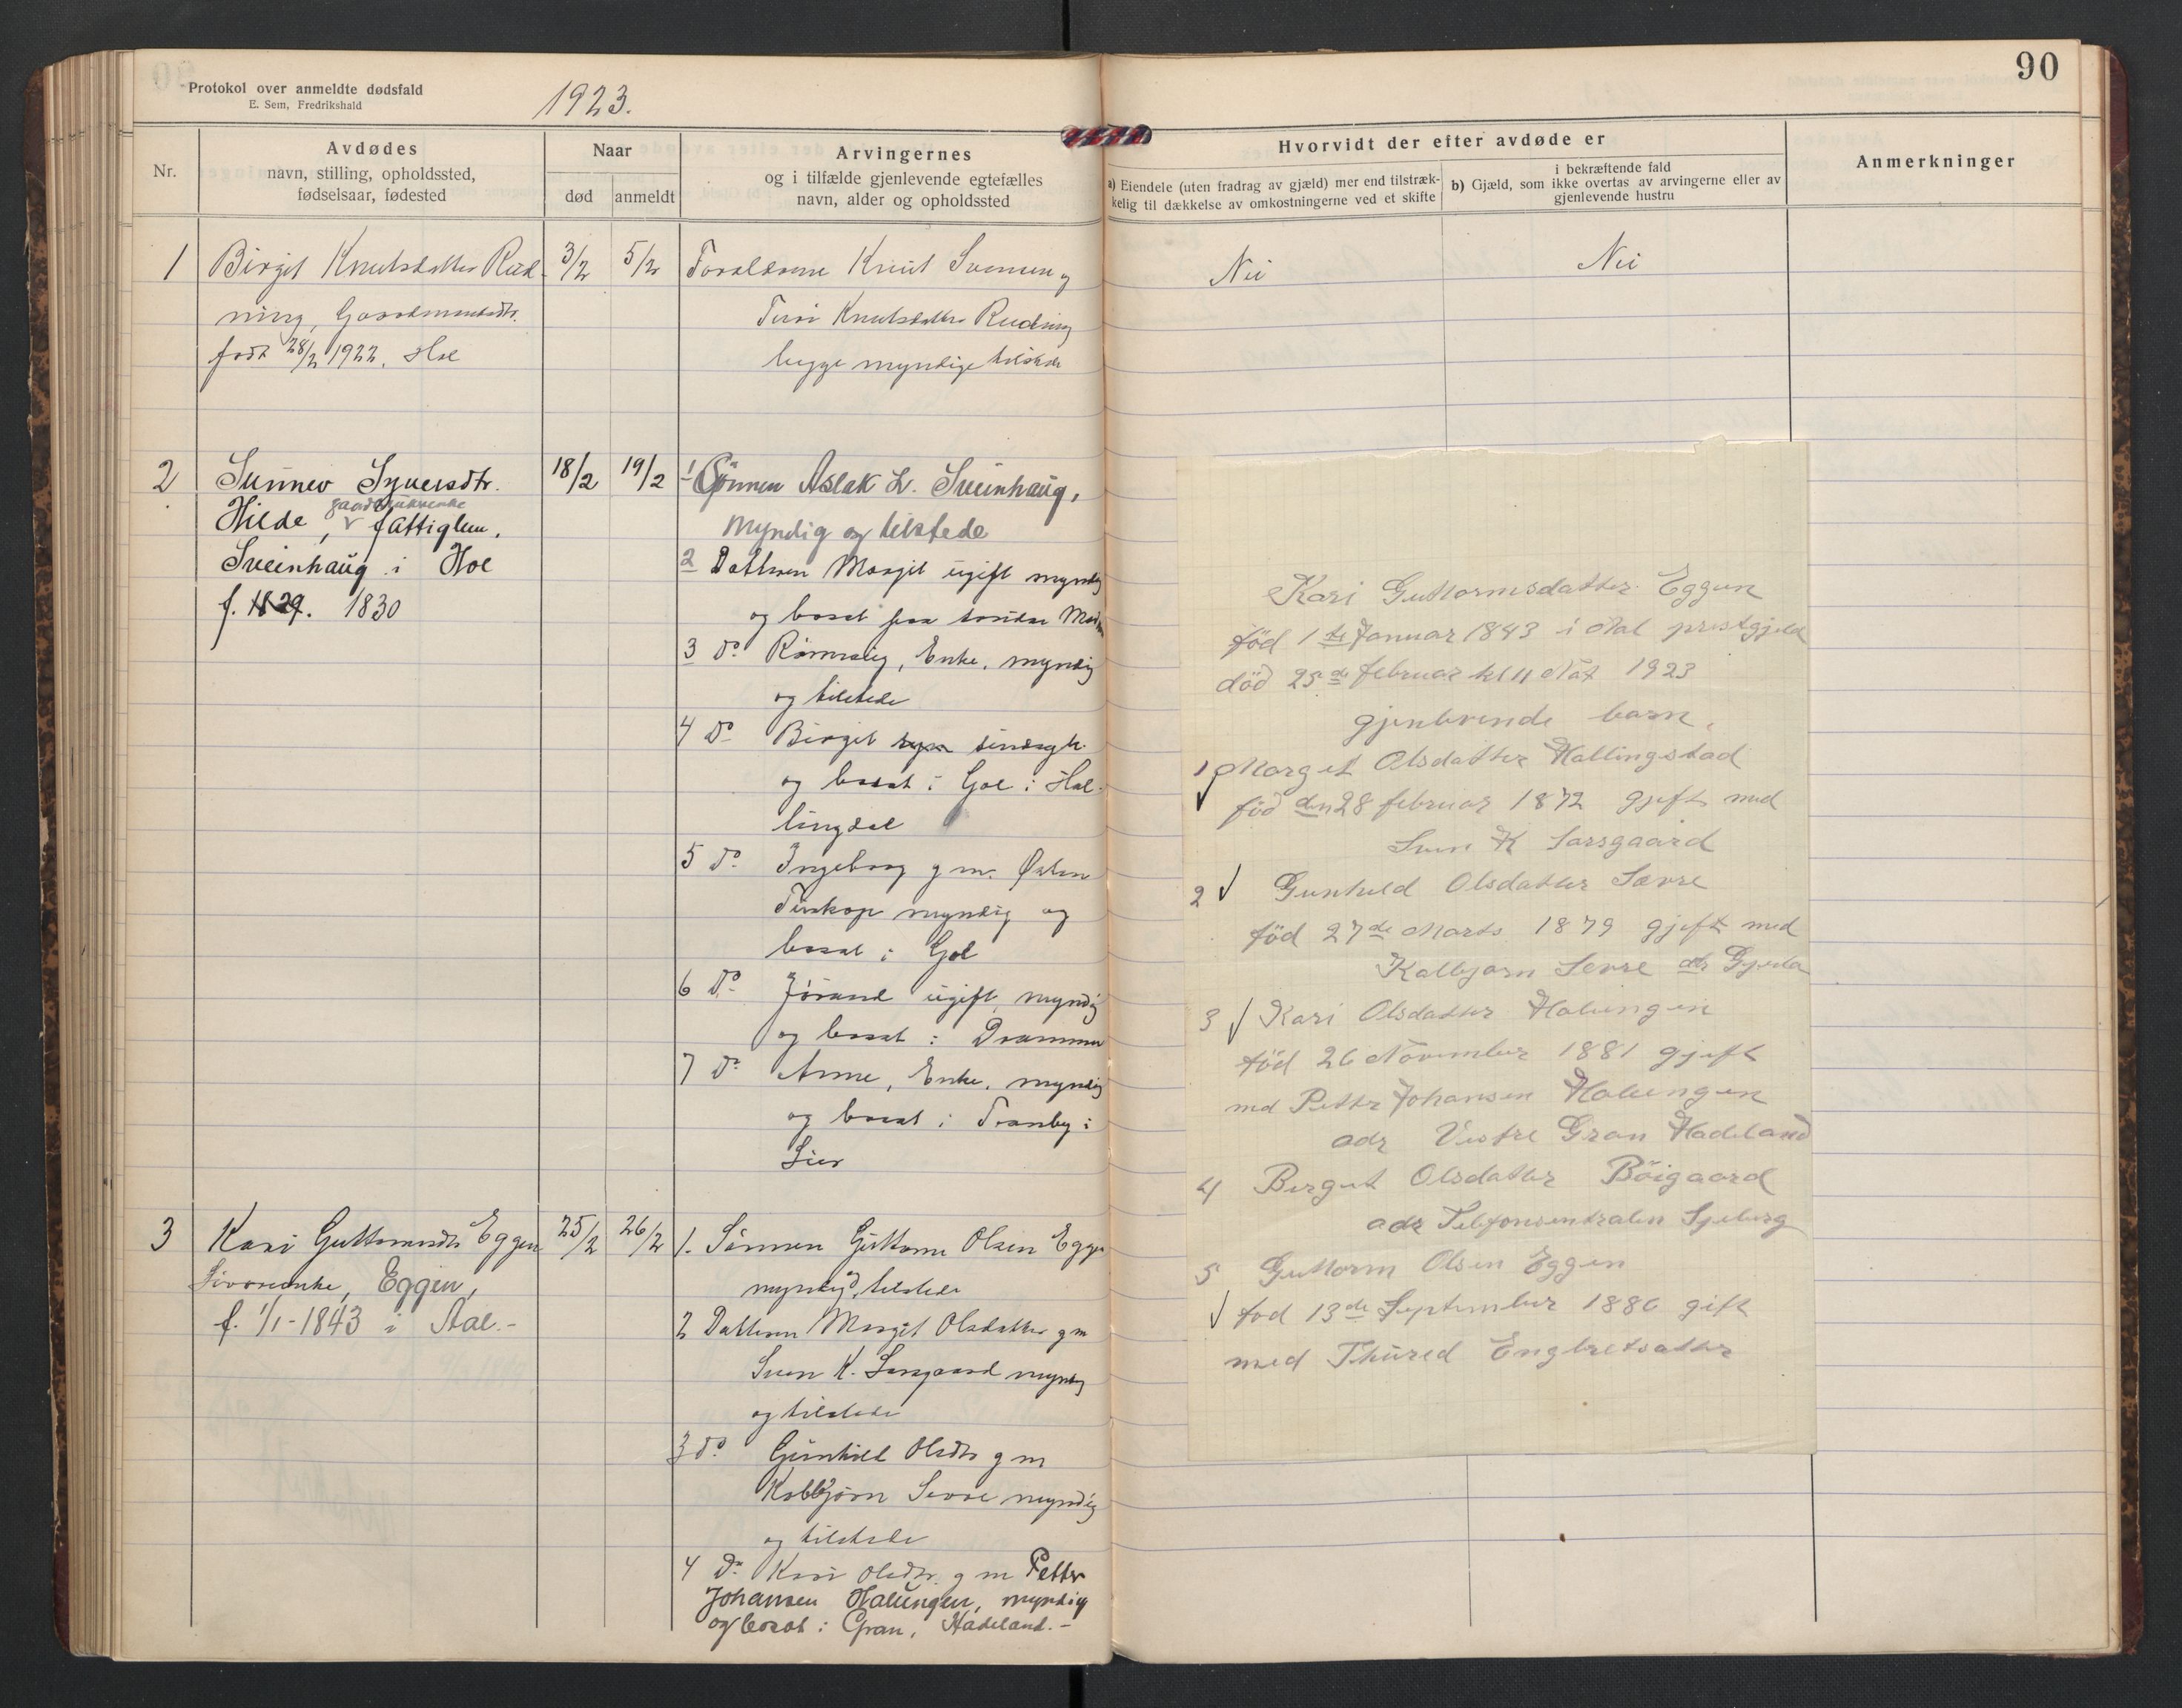 90
Protokol over anmeldte dødsfald
E. Sem, Fredrikshald
1923.
Nr.
Avdødes
navn, stilling, opholdssted,
fødselsaar, fødested
Naar
død
anmeldt
Arvingernes
og i tilfælde gjenlevende egtefælles
navn, alder og opholdssted
Hvorvidt der efter avdøde er
a) Eiendele (uten fradrag av gjæld) mer end tilstræk-
kelig til dækkelse av omkostningerne ved et skifte
i bekræftende fald
b) Gjæld, som ikke overtas av arvingerne eller av
gjenlevende hustru
Anmerkninger
1
Birgit Knutsdatter Rud-
ning, Gaardmandsdtr.
født 28/2 1922. Hol
3/2
5/2
Forældrene Knut Svensen og
Turi Knutsdatter Rudning
begge myndige tilstede
Nei
Nei
2
Sunnev Syversdtr.
gaardbrukerenke
Hilde, fattiglem,
Sveinhaug i Hol
f. 1829. 1830
18/2
19/2
1 Sönnen Aslak L. Sveinhaug,
Myndig og tilstede
2 Datteren Margit ugift myndig
og bosat paa
3 do Rønnaug, Enke, myndig
og tilstede
4 do Birgit sindsyk
og bosat i Gol i Hal-
lingdal
5 do Ingeborg g m.
Turkop myndig og
bosat i Gol
6 do Jörand ugift, myndig
og bosat i Drammen
7 do Anne, Enke, myndig
og bosat i Tranby i
Lier
3
Kari Guttormsdtr Eggen
Livøreenke, Eggen,
f. 1/1-1843 i Aal.-
25/2
26/2
1. Sönnen Guttorm Olsen Eggen
myndig, tilstede
2 Datteren Margit Olsdatter g m
Sven K. Sangaard myndig
og tilstede
3 do Gunhild Olsdtr g m
Kolbjörn Sevre myndig
og tilstede
4 do Kari Olsdtr. g m Petter
Johansen Halungen, myndig
og bosat i Gran, Hadeland.-
Kari Guttormsdatter Eggen
föd 1ste Januar 1843 i Aal prestgjeld
död 25de februar kl 11 Nat 1923
gjenlevende barn.
1 Marget Olsdatter Hallingstad
föd den 28 februar 1872 gjeft med
Sven K Sarsgaard
2 Gunhild Olsdatter Sævre
föd 27de Marts 1879 gjeft med
Kolbjørn Sevre adr Gjeilo
3 Kari Olsdatter Halungen
föd 26 November 1881 gjeft
med Petter Johansen Halungen
adr Vestre Gran Hadeland
4 Bergit Olsdatter Böigaard
adr Telefonsentralen Sjeberg
5 Guttorm Olsen Eggen
fod 13de September 1886 gift
med Thured Engbretsatter